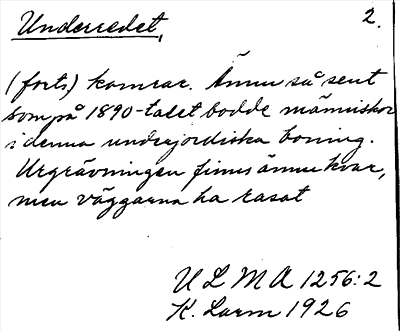 Underredet, 2.
(forts) kamrar. Ännu så sent
som på 1890-talet bodde människor
i denna underjordiska boning.
Urgrävningen finns ännu kvar,
men väggarna ha rasat
ULMA 1256:2
K. Larm 1926